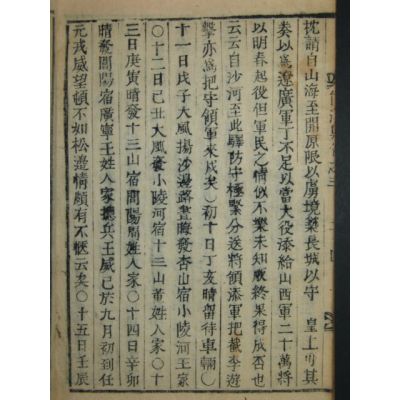 訖請自山海至開原限以虜境築長城以守　皇上可其
奏以爲遼廣軍丁不足以當大役添給山西軍二十萬將
以明春起役但軍民之情似不樂未知厥終果得成否也
云云自沙河至此驛防守極緊分送將領添軍把截李遊
擊亦爲把守領軍來戍矣○初十日丁亥晴留待車輛○
十一日戊子大風揚沙邊路晝晦發杏山宿小陵河王家
○十二日己丑大風發小陵河宿十三山董姓人家○十
三日庚寅晴發十三山宿閭陽屬姓人家○十四日辛卯
晴發閭陽宿廣寧王姓人家摠兵王威已於九月初到任
元戎威望頓不如松邊情頗有不愜云矣○十五日壬辰